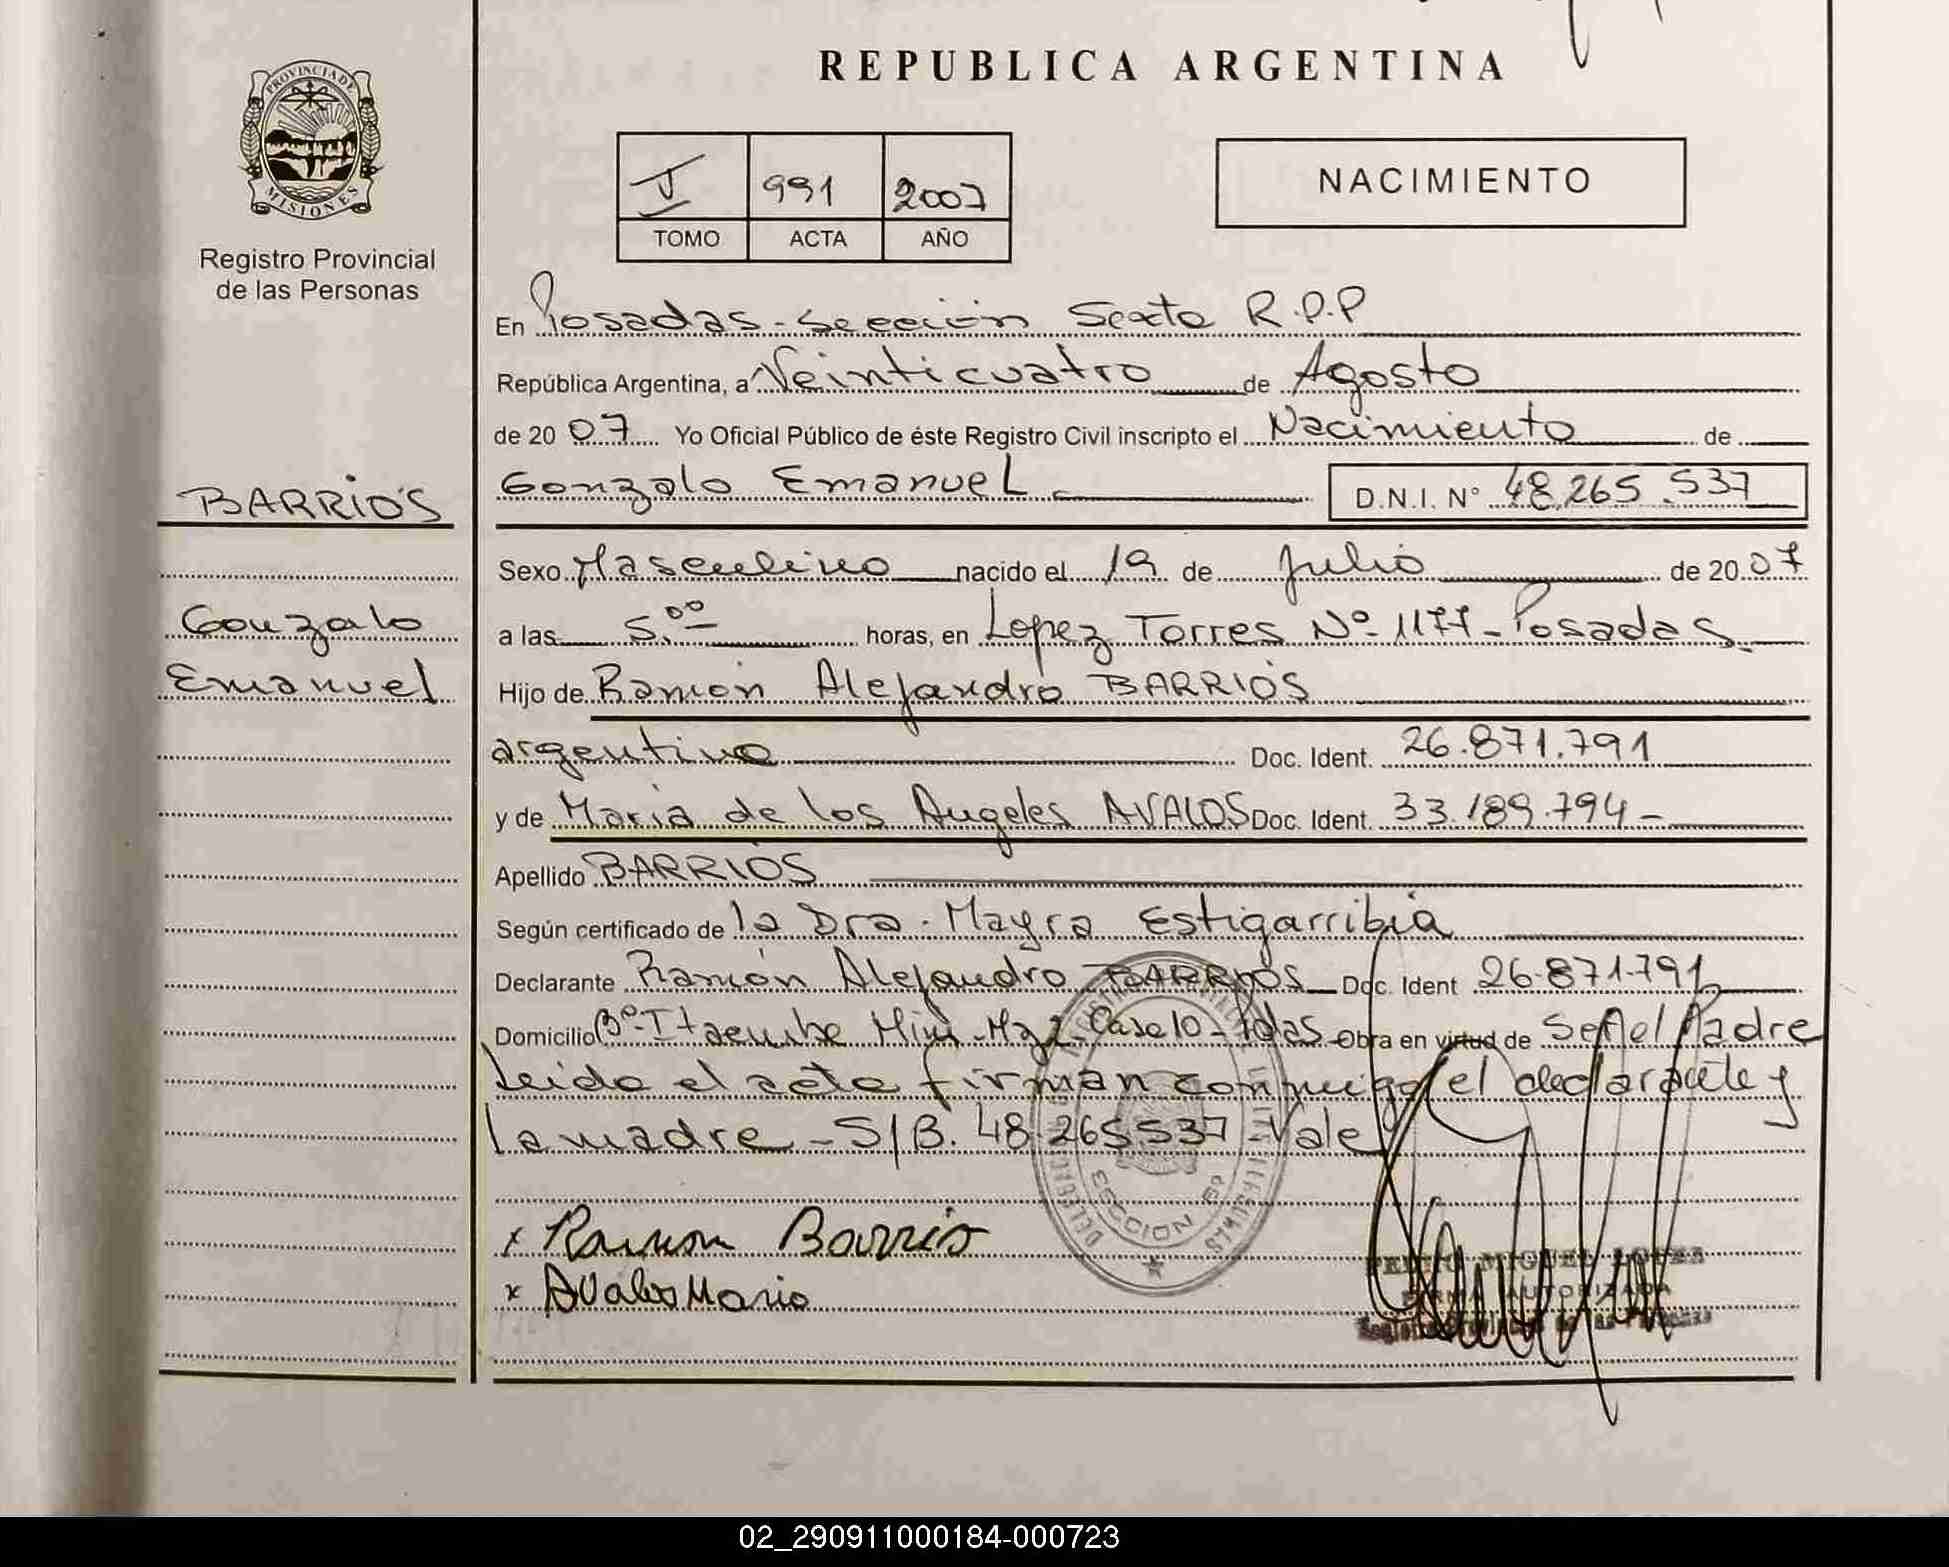 REPUBLICA ARGENTINA
PROVINCIA DE
MISIONES
Registro Provincial
de las Personas
I 991 2007
TOMO ACTA AÑO
NACIMIENTO
En Posadas - Sección Sexta R.P.P
República Argentina, a Veinticuatro de Agosto
de 20 07 Yo Oficial Público de éste Registro Civil inscripto el Nacimiento de
BARRIOS
Gonzalo Emanuel D.N.I. N° 48.265.537
Sexo Masculino nacido el 19 de Julio de 20 07
Gonzalo
a las 5.00 horas, en Lopez Torres Nº 1177 - Posadas
Emanuel
Hijo de Ramón Alejandro BARRIOS
argentino Doc. Ident. 26.871.791
y de María de los Angeles AVALOS Doc. Ident. 33.189.794 -
Apellido BARRIOS
Según certificado de la Dra. Mayra Estigarribia
Declarante Ramón Alejandro BARRIOS Doc. Ident 26.871.791
Domicilio Bº Itaembe Mini - Mz Casa 10 - Pdas Obra en virtud de Ser el Padre
Leida el acta firman conmigo el declarante y
la madre - S/B. 48.265.537 - Vale
SECCION 6º
x Ramon Barrios
x Avalos Maria
MIGUEL LOPEZ
FIRMA AUTORIZADA
Registro Provincial de las Personas
02_290911000184-000723